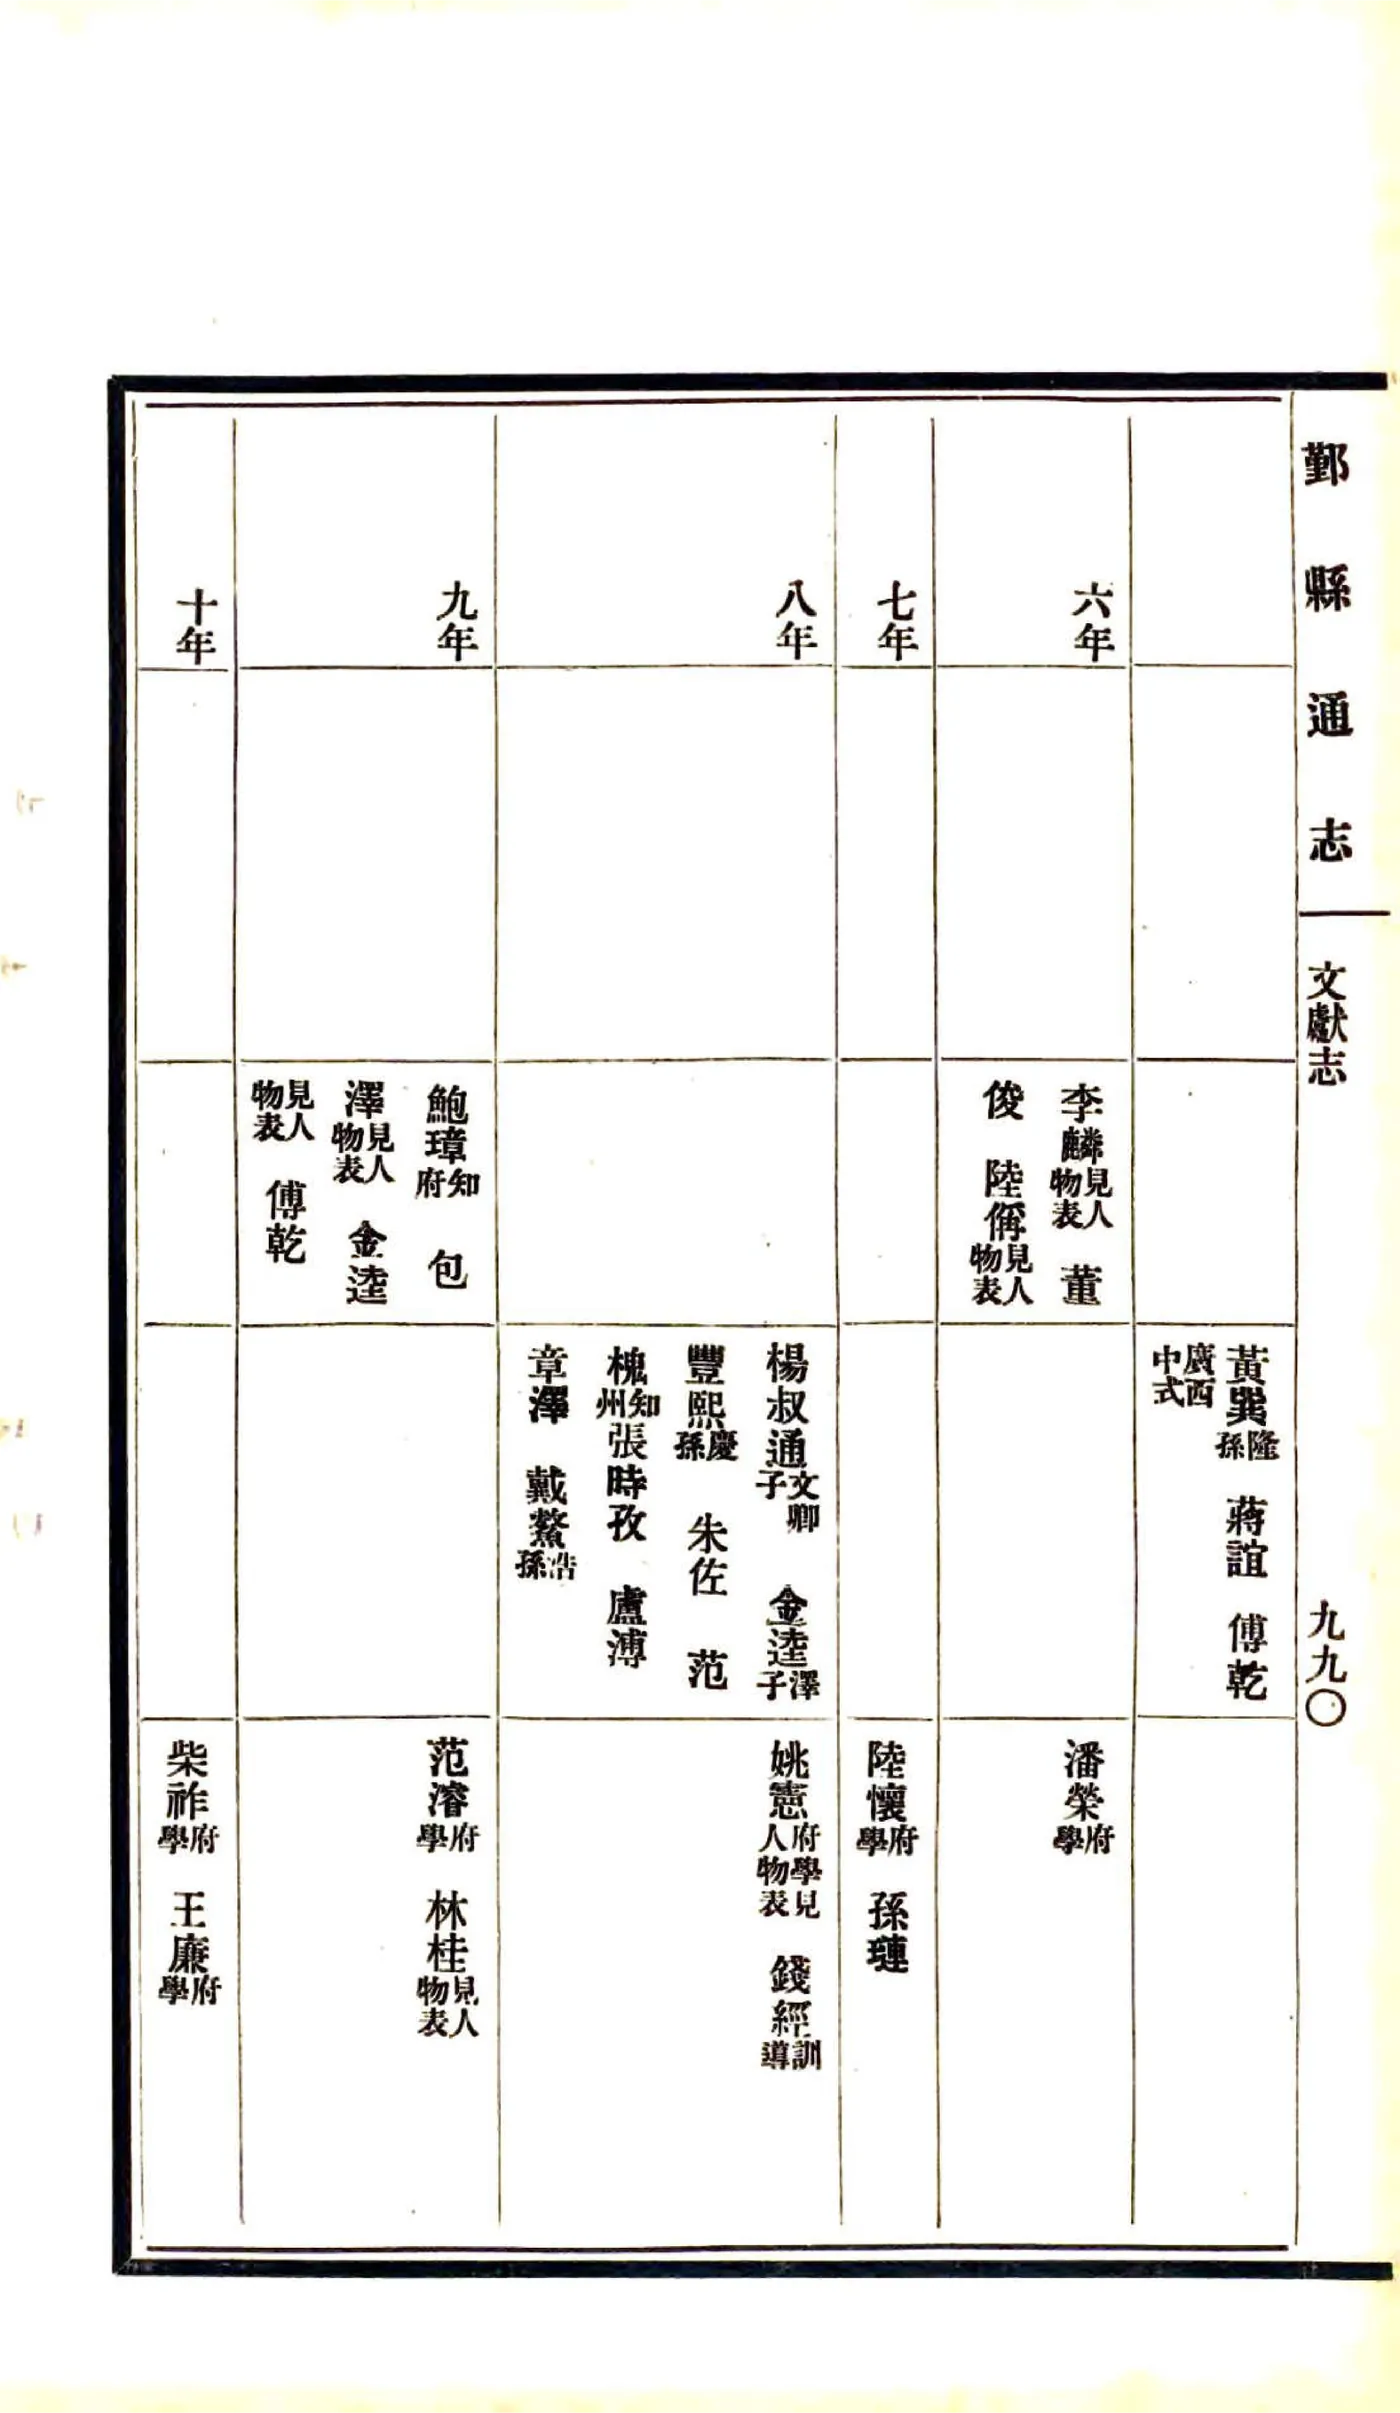 鄞縣通志
文獻志
九九〇
黃巽隆孫 蔣誼 傅乾
廣西中式
六年
李麟見人物表 董
俊 陸偁見人物表
潘榮府學
七年
陸懷府學 孫璉
八年
楊叔通文卿子 金逵澤子
豐熙慶孫 朱佐 范
槐知州 張時孜 盧溥
章澤 戴鰲浩孫
姚憲府學見人物表 錢經訓導
九年
鮑璋知府 包
澤見人物表 金逵
見人物表 傅乾
范濬府學 林桂見人物表
十年
柴祚府學 王廉府學